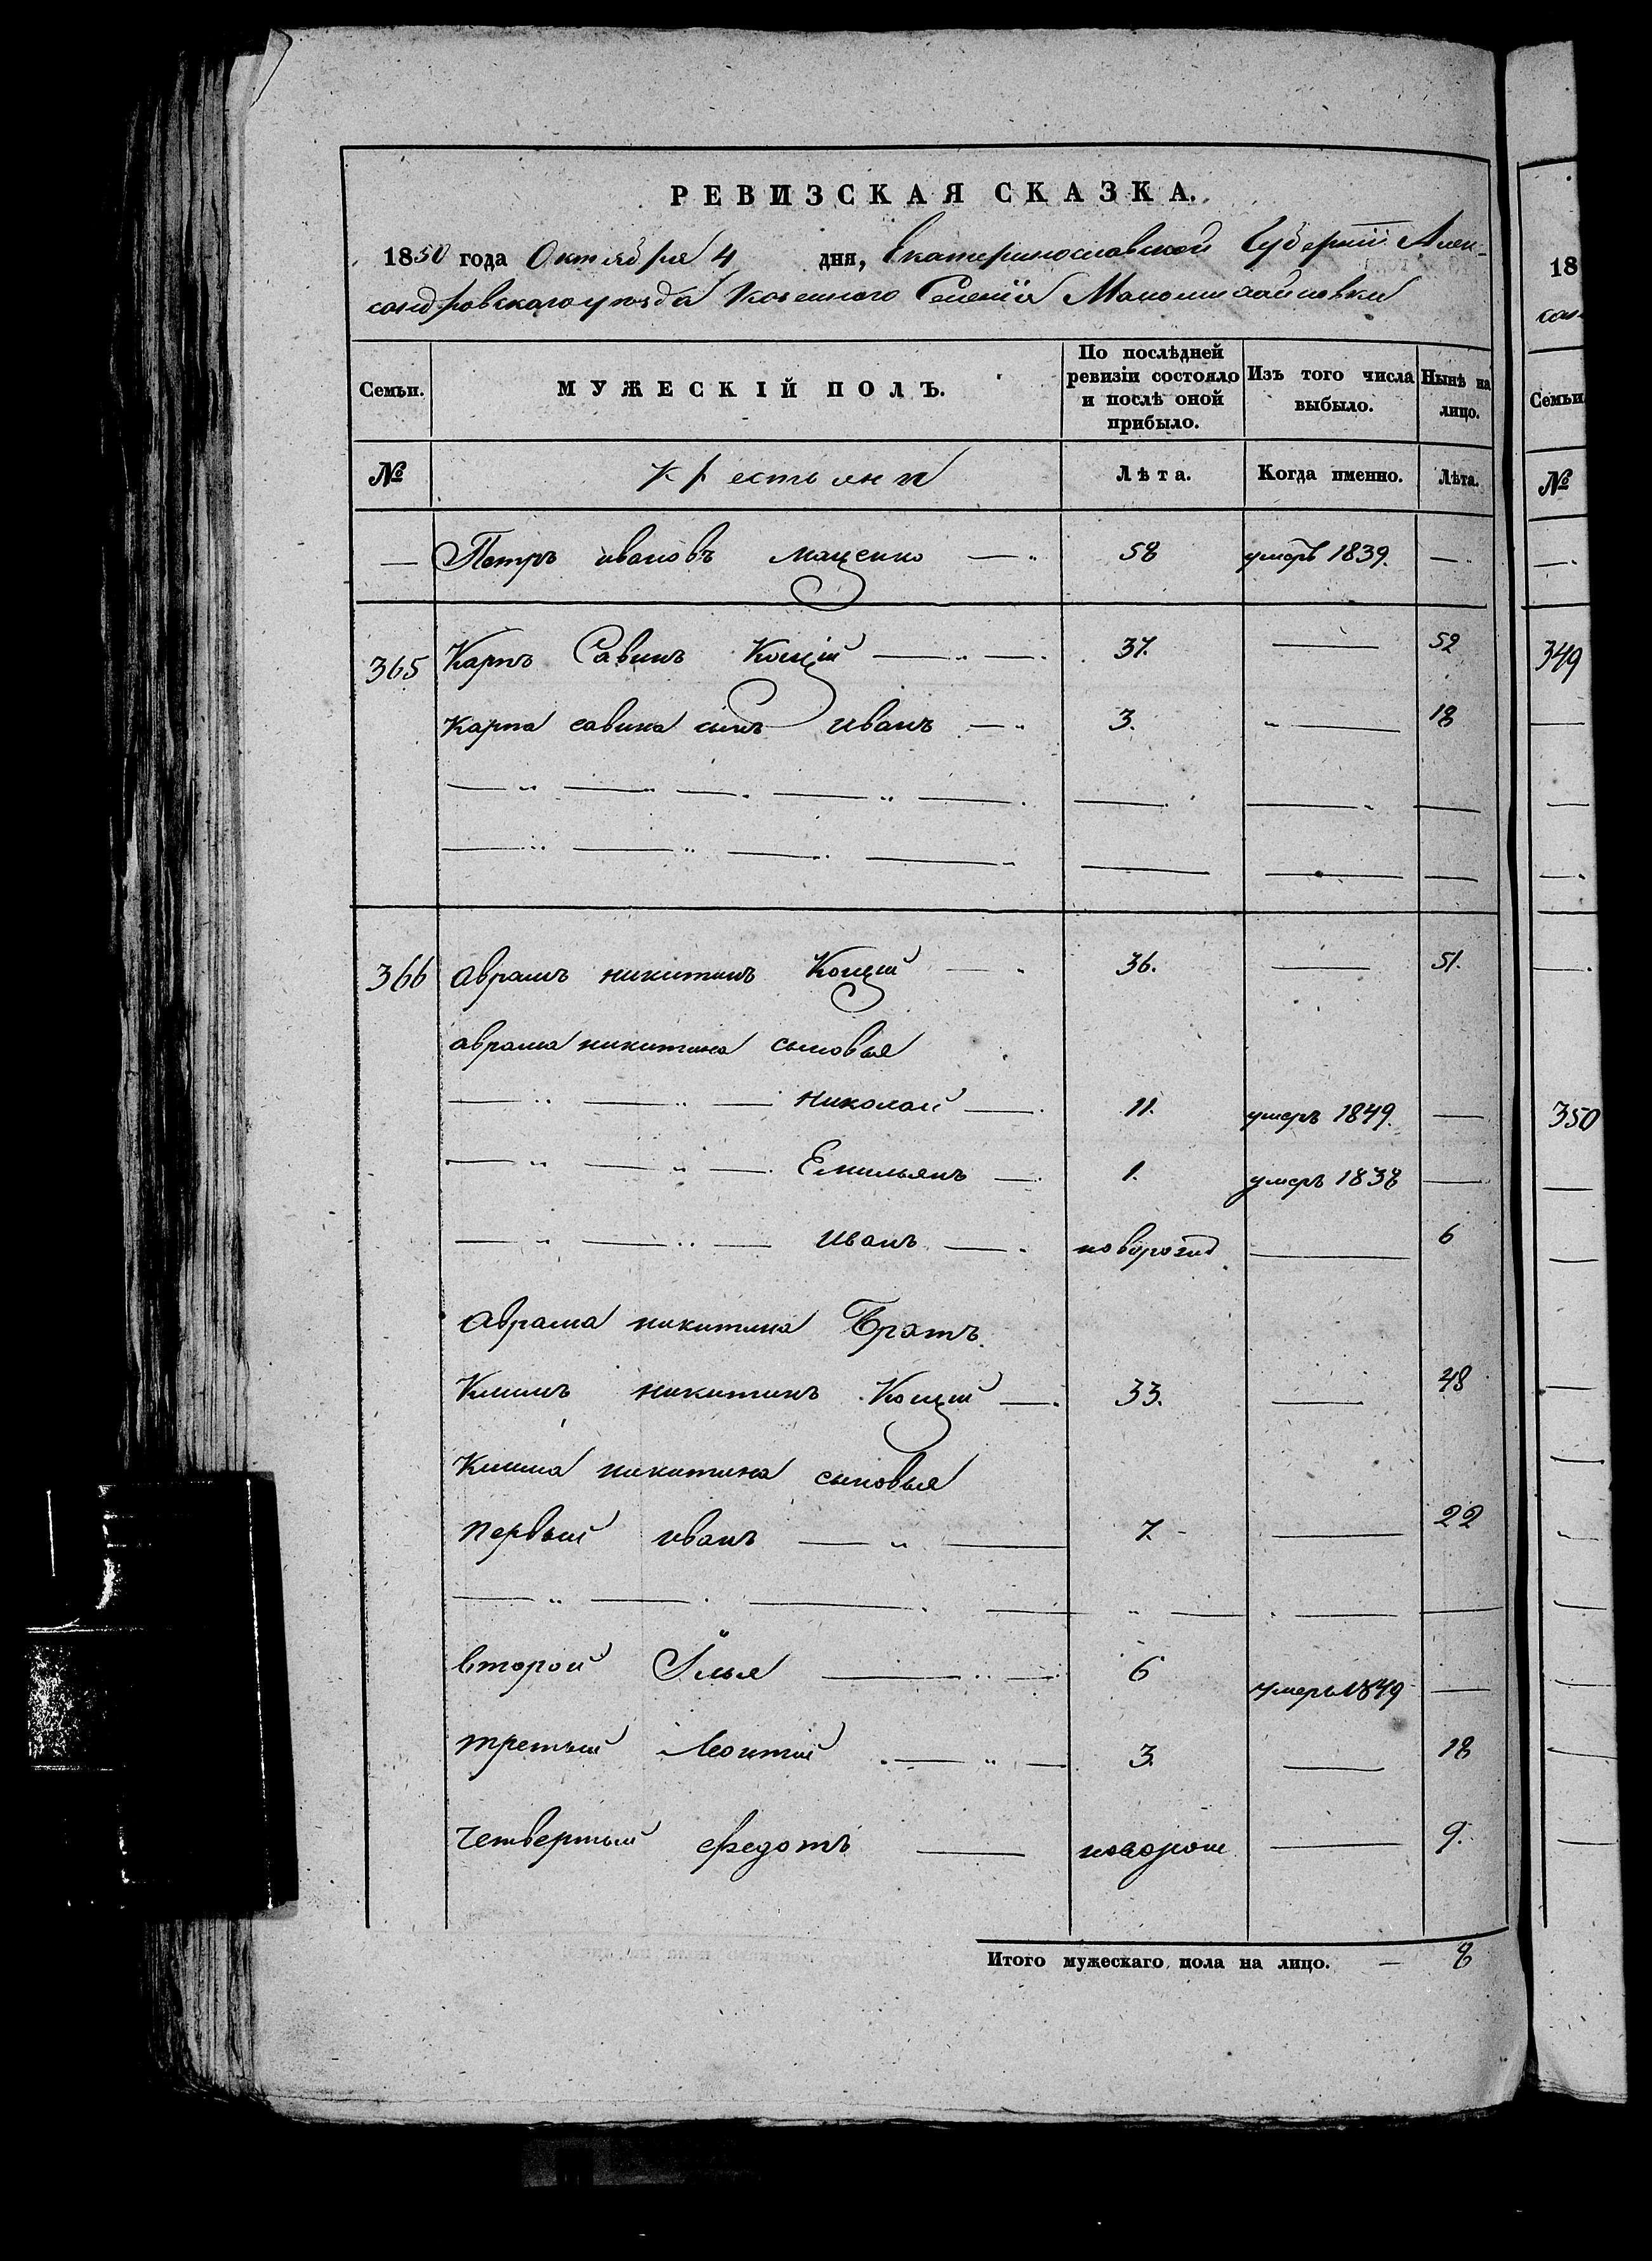 РЕВИЗСКАЯ СКАЗКА.
1850 года Октября 4 дня, Екатеринославской Губернiи Алек-
сандровскаго уѣзда Казеннаго Селенiя Маломихайловки
Семьи. МУЖЕСКІЙ ПОЛЪ. По послѣдней ревизіи состояло и послѣ оной прибыло. Изъ того числа выбыло. Нынѣ на лицо.
№ Крестьяни Лѣта. Когда именно. Лѣта.
— Петръ ивановъ маценко — 58 умеръ 1839. —
365 Карпъ Савинъ Кощiй — 37. — 52
Карпа савина сынъ иванъ — 3. — 18
366 аврамъ никитинъ Кощiй — 36. — 51.
аврама никитина сыновья
николай — 11. умеръ 1849. —
Емильянъ — 1. умеръ 1838 —
иванъ — новорожд — 6
аврама никитина Братъ.
Климъ никитинъ Кощiй — 33. — 48
Клима никитина сыновья
первый иванъ — 7. — 22
второй Илья — 6 умеръ 1849 —
третый Леонтiй — 3. — 18
четвертый федотъ — новорож — 9.
Итого мужескаго пола на лицо. — 8
18
сан
Семьи
№
349
350